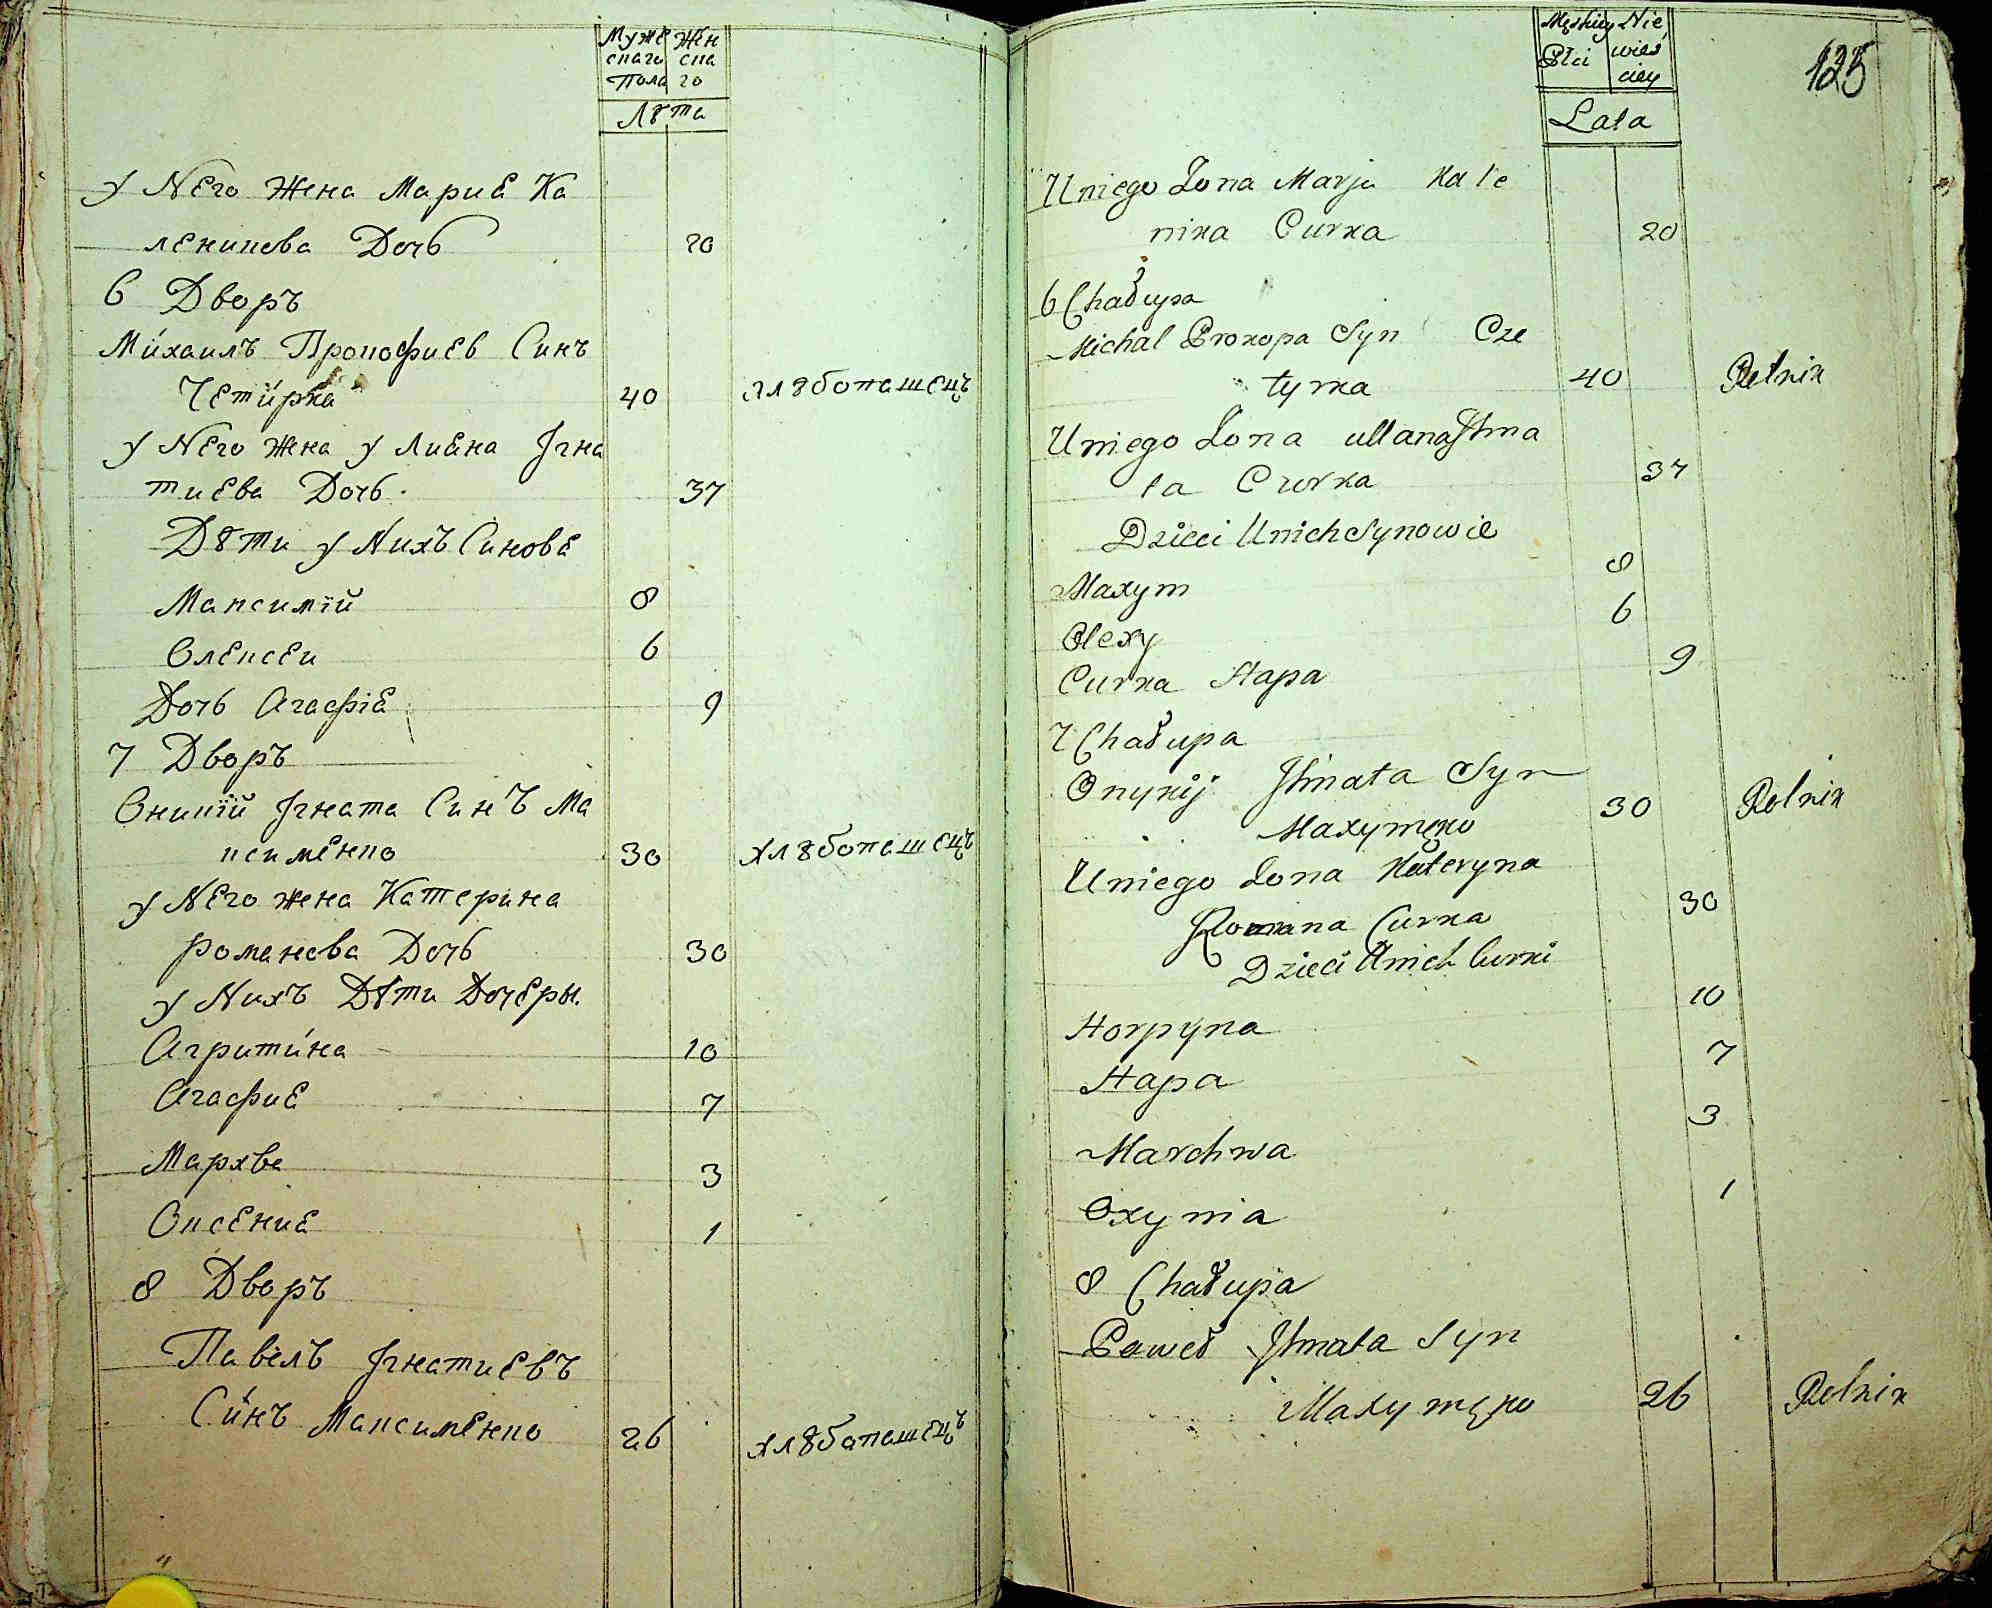 Мужескаго Пола
Женскаго
Лѣта
у Него Жена Марие Ка
леникова Дочь 20
6 Дворъ
Михаилъ Прокофиев Синъ
Четирка 40 хлѣбопашецъ
у Него Жена улиана Ігна
тиева Дочь 37
Дѣти у Нихъ Синове
Максимїй 8
Олексеи 6
Дочь Агафіе 9
7 Дворъ
Оникїй Ігната Синъ Ма
ксименко 30 хлѣбопашецъ
у Него жена Катерина
романова Дочь 30
у Нихъ Дѣти Дочеры
Агрипина 10
Агафие 7
Мархва 3
Оксение 1
8 Дворъ
Павелъ Ігнатиевъ
Синъ Максименко 26 хлѣбопашецъ
Męskiey Płci
Niewieściey
Lata
125
Uniego Żona Marja Kale
nika Curka 20
6 Chałupa
Michal Prokopa Syn Cze
tyrka 40 Rolnik
Uniego Żona ullana Ihna
ta Curka 37
Dzieci Unich Synowie
Maxym 8
Olexy 6
Curka Hapa 9
7 Chałupa
Onykij Ihnata Syn
Maxymęko 30 Rolnik
Uniego Żona Kateryna
Romana Curka 30
Dzieci Unich Curki
Horpyna 10
Hapa 7
Marchwa 3
Oxynia 1
8 Chałupa
Paweł Ihnata Syn
Maxymęko 26 Rolnik